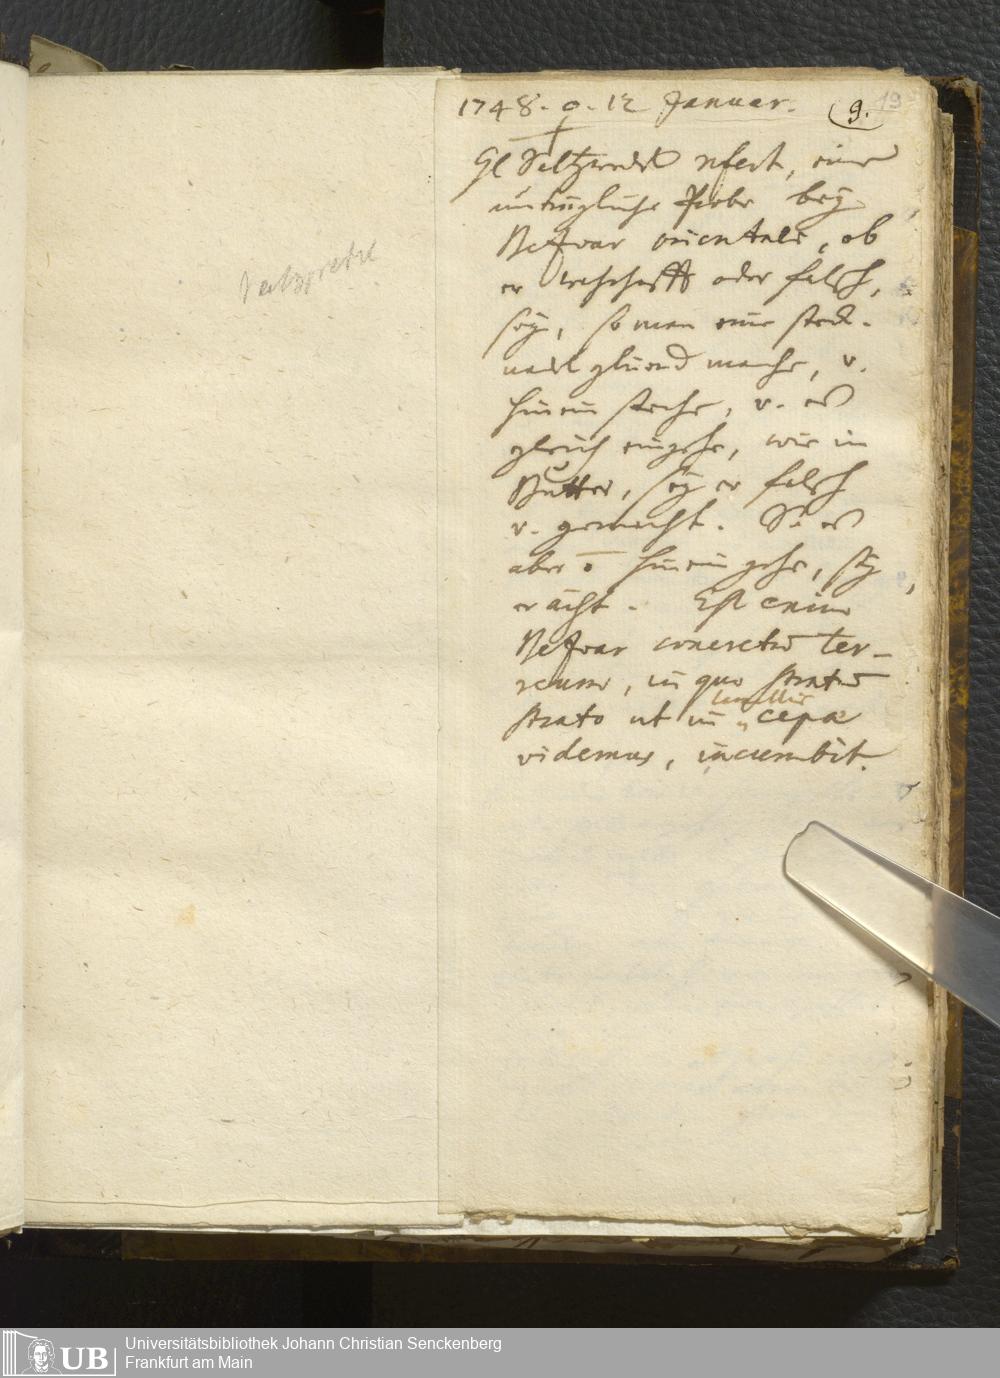 Saltzwedel
1748. ♀. 12 Januar. (9.
19
Saltzwedel rfert, eine
untrügliche Probe bey
Bezoar orientale, ob
er oder falsch,
sey, so man eine steck-
nadl glüend mache, v.
hinein steche, v. es
gleich eingehe, wie in
Butter, sey er falsch
v. gemacht. So es
aber hinein gehe, sey
er ächt. Est enim
Bezoar concretū ter-
reum, in quo stratū
strato ut in lamellis cepæ
videmus, incumbit.
Universitätsbibliothek Johann Christian Senckenberg
Frankfurt am Main
UB